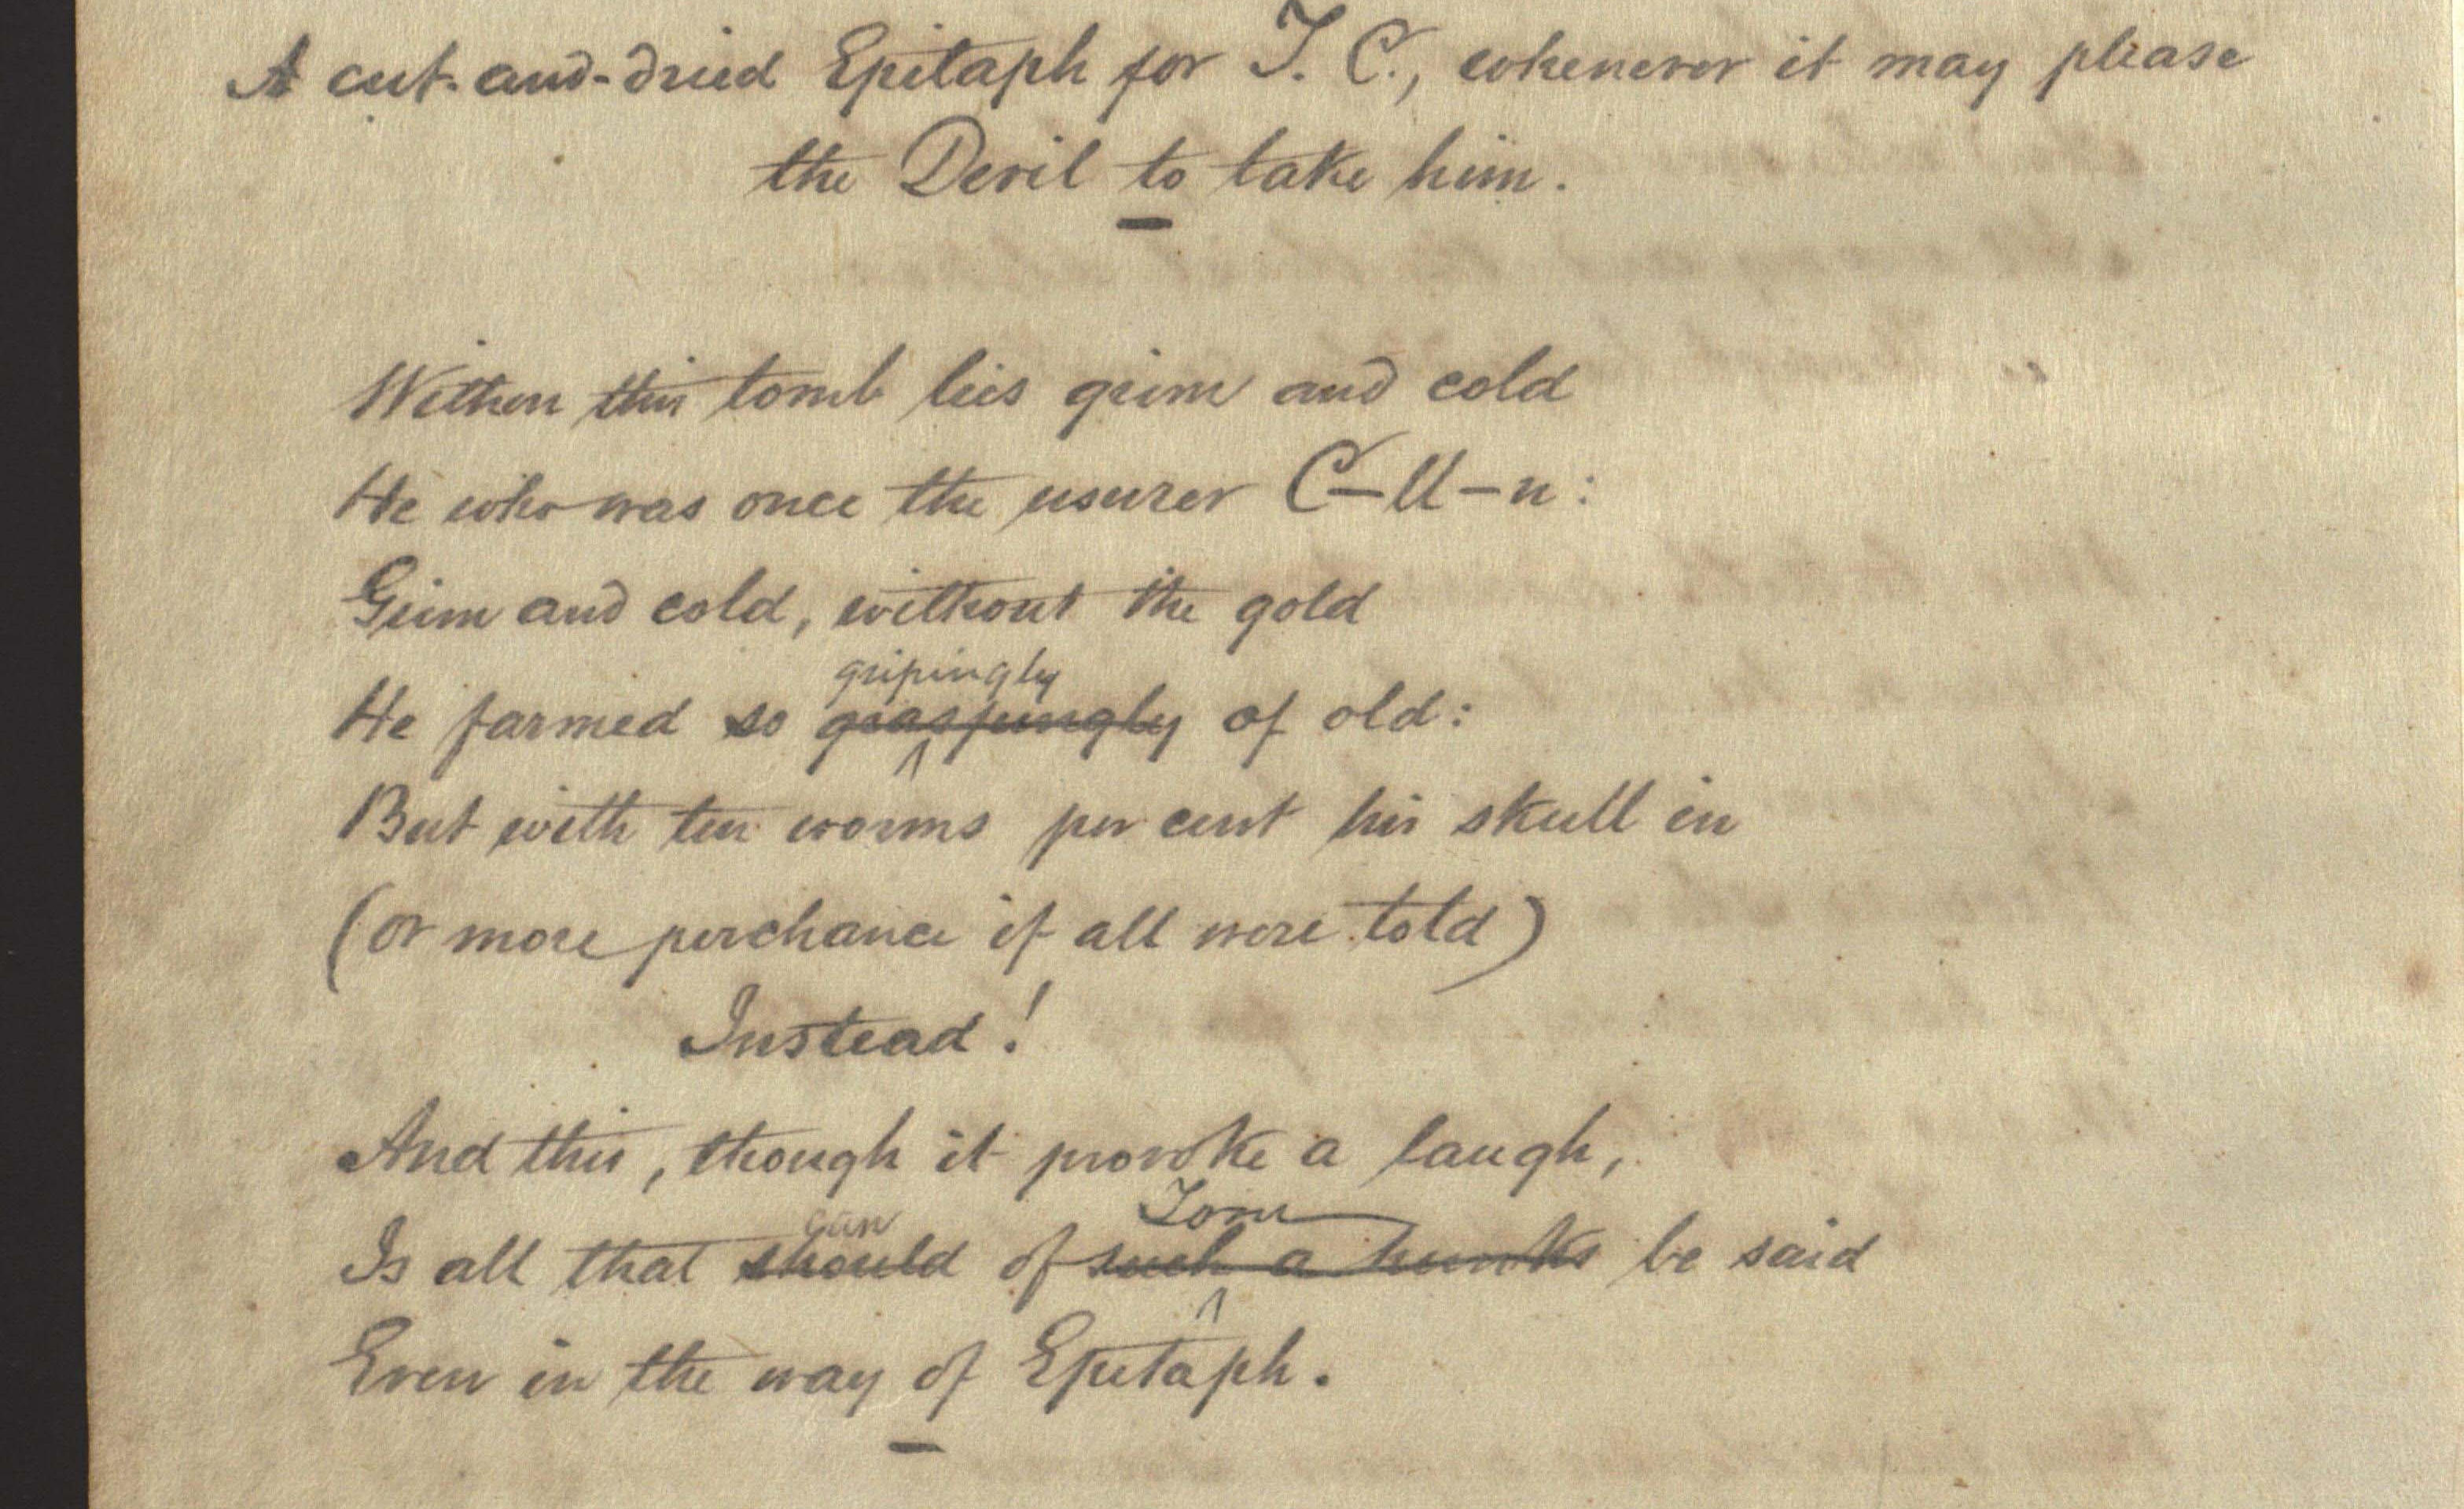 A cut-and-dried Epitaph for T. C., whenever it may please
the Devil to take him.
Within this tomb lies grim and cold
He who was once the usurer C–ll–n:
Grim and cold, without the gold
gripingly
He farmed so graspingly of old:
But with ten worms per cent his skull in
(or more perchance if all were told)
Instead!
And this, though it provoke a laugh,
can Tom
Is all that should of such a hunks be said
Even in the way of Epitaph.